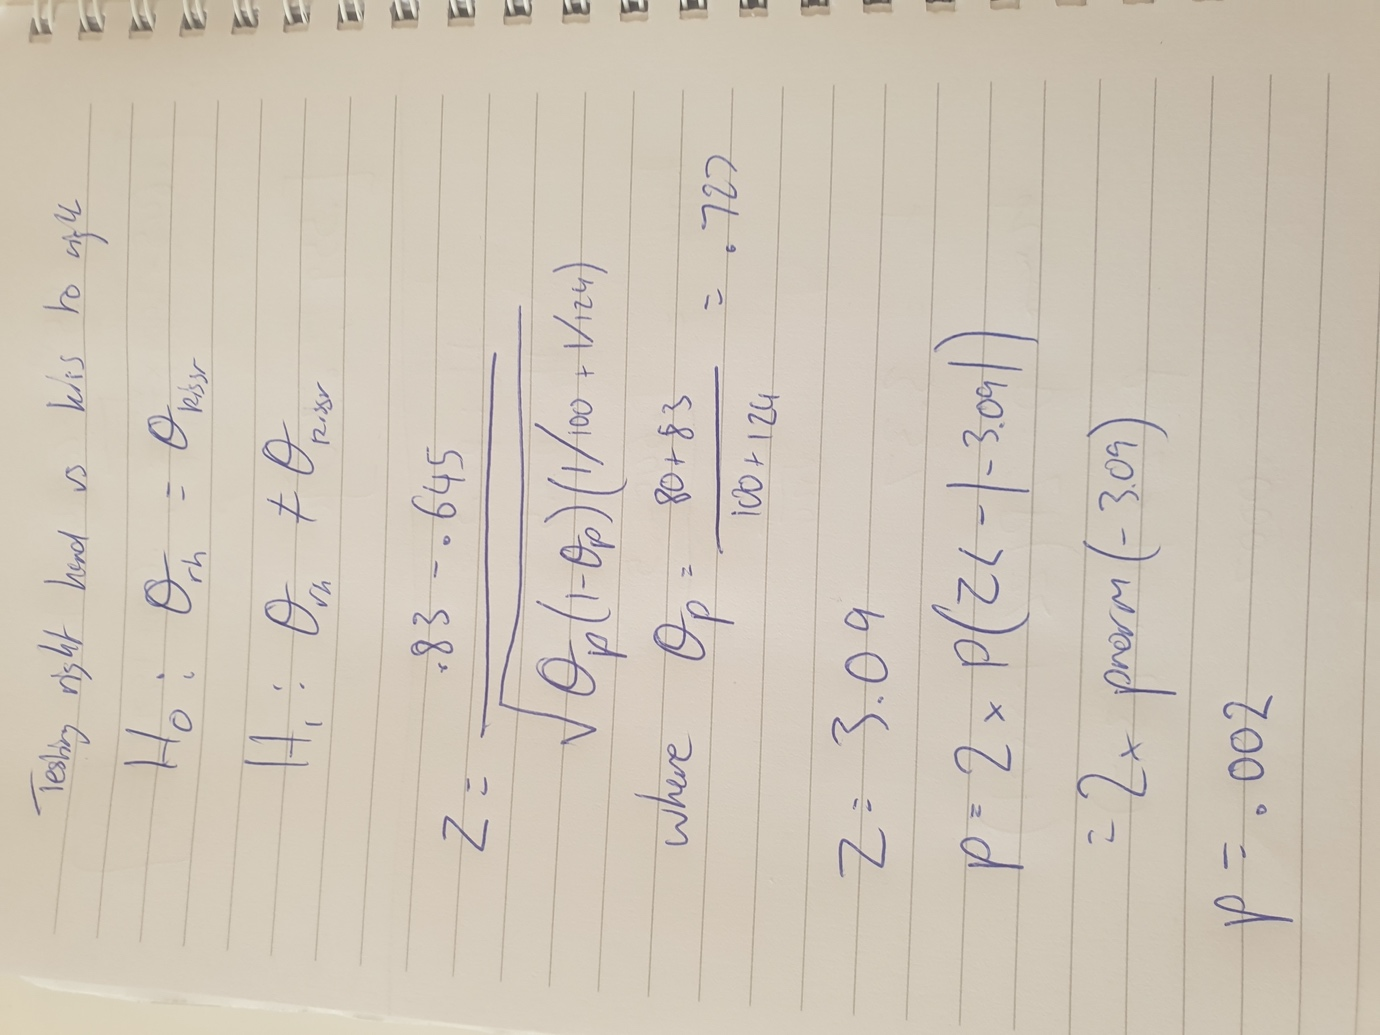 Testing right hand vs kiss to right
H₀ : θ_rh = θ_kissr
H₁ : θ_rh ≠ θ_kissr
Z = (.83 - .645) / √(θ_p(1-θ_p)(1/100 + 1/124))
where θ_p = (80+83) / (100+124) = .727
Z = 3.09
p = 2 × P(Z < -|-3.09|)
= 2 × pnorm(-3.09)
p = .002